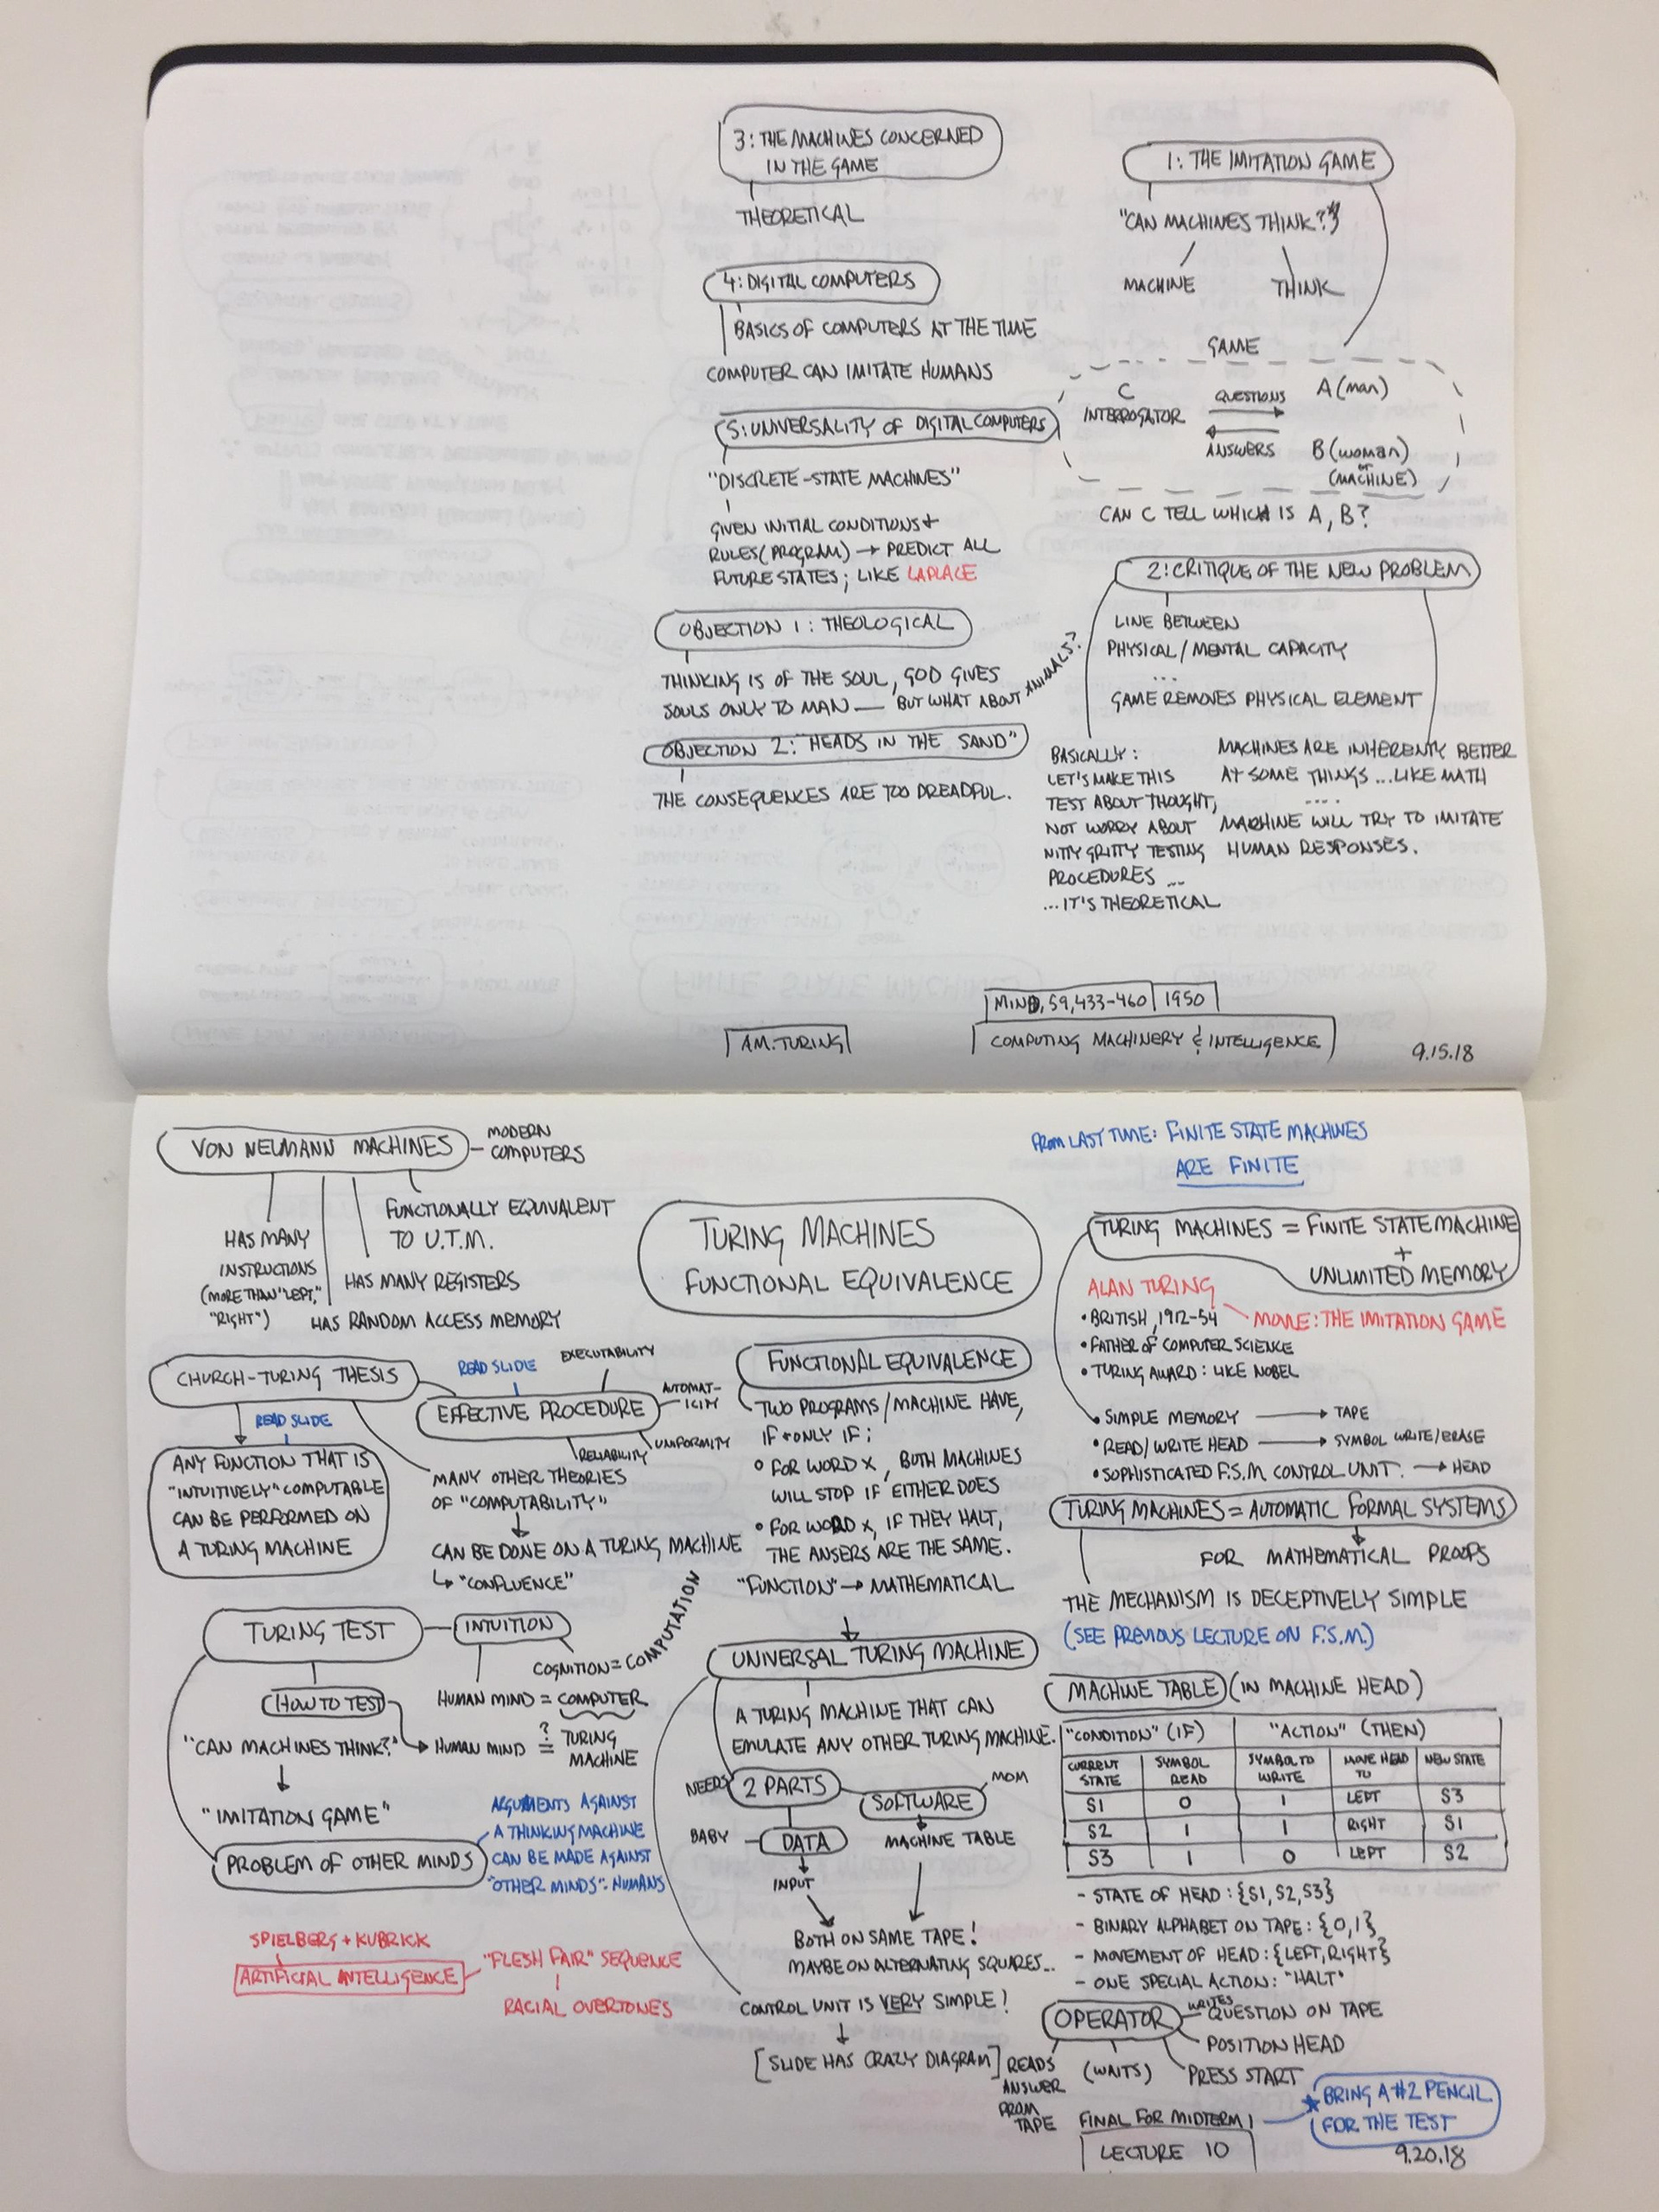 3: THE MACHINES CONCERNED
IN THE GAME
THEORETICAL
4: DIGITAL COMPUTERS
BASICS OF COMPUTERS AT THE TIME
COMPUTER CAN IMITATE HUMANS
5: UNIVERSALITY OF DIGITAL COMPUTERS
"DISCRETE-STATE MACHINES"
GIVEN INITIAL CONDITIONS +
RULES (PROGRAM) → PREDICT ALL
FUTURE STATES; LIKE LAPLACE
OBJECTION 1: THEOLOGICAL
THINKING IS OF THE SOUL, GOD GIVES
SOULS ONLY TO MAN — BUT WHAT ABOUT ANIMALS?
OBJECTION 2: "HEADS IN THE SAND"
THE CONSEQUENCES ARE TOO DREADFUL.
1: THE IMITATION GAME
"CAN MACHINES THINK?"
MACHINE THINK
GAME
C
INTERROGATOR
QUESTIONS
ANSWERS
A (man)
B (woman)
or
(MACHINE)
CAN C TELL WHICH IS A, B?
2: CRITIQUE OF THE NEW PROBLEM
LINE BETWEEN
PHYSICAL / MENTAL CAPACITY
...
GAME REMOVES PHYSICAL ELEMENT
BASICALLY:
LET'S MAKE THIS
TEST ABOUT THOUGHT,
NOT WORRY ABOUT
NITTY GRITTY TESTING
PROCEDURES ...
... IT'S THEORETICAL
MACHINES ARE INHERENTY BETTER
AT SOME THINGS ... LIKE MATH
....
MACHINE WILL TRY TO IMITATE
HUMAN RESPONSES.
MIND, 59, 433-460 1950
A.M. TURING
COMPUTING MACHINERY & INTELLIGENCE
9.15.18
VON NEUMANN MACHINES - MODERN
COMPUTERS
HAS MANY
INSTRUCTIONS
(MORE THAN "LEFT,"
"RIGHT")
FUNCTIONALLY EQUIVALENT
TO U.T.M.
HAS MANY REGISTERS
HAS RANDOM ACCESS MEMORY
CHURCH-TURING THESIS
READ SLIDE
ANY FUNCTION THAT IS
"INTUITIVELY" COMPUTABLE
CAN BE PERFORMED ON
A TURING MACHINE
READ SLIDE
EXECUTABILITY
EFFECTIVE PROCEDURE
AUTOMAT-
ICITY
UNIFORMITY
RELIABILITY
MANY OTHER THEORIES
OF "COMPUTABILITY"
CAN BE DONE ON A TURING MACHINE
↳ "CONFLUENCE"
TURING TEST
INTUITION
COGNITION = COMPUTATION
HUMAN MIND = COMPUTER
HOW TO TEST
"CAN MACHINES THINK?"
HUMAN MIND ?= TURING
MACHINE
"IMITATION GAME"
PROBLEM OF OTHER MINDS
ARGUMENTS AGAINST
A THINKING MACHINE
CAN BE MADE AGAINST
"OTHER MINDS": HUMANS
SPIELBERG + KUBRICK
ARTIFICIAL INTELLIGENCE
"FLESH FAIR" SEQUENCE
RACIAL OVERTONES
TURING MACHINES
FUNCTIONAL EQUIVALENCE
FUNCTIONAL EQUIVALENCE
TWO PROGRAMS / MACHINE HAVE,
IF + ONLY IF:
° FOR WORD X, BOTH MACHINES
WILL STOP IF EITHER DOES
° FOR WORD X, IF THEY HALT,
THE ANSERS ARE THE SAME.
"FUNCTION" → MATHEMATICAL
UNIVERSAL TURING MACHINE
A TURING MACHINE THAT CAN
EMULATE ANY OTHER TURING MACHINE.
NEEDS 2 PARTS
MOM
SOFTWARE
BABY
DATA
MACHINE TABLE
INPUT
BOTH ON SAME TAPE!
MAYBE ON ALTERNATING SQUARES...
CONTROL UNIT IS VERY SIMPLE!
[SLIDE HAS CRAZY DIAGRAM]
FROM LAST TIME: FINITE STATE MACHINES
ARE FINITE
TURING MACHINES = FINITE STATE MACHINE
+
UNLIMITED MEMORY
ALAN TURING
MOVIE: THE IMITATION GAME
• BRITISH, 1912-54
• FATHER OF COMPUTER SCIENCE
• TURING AWARD: LIKE NOBEL
• SIMPLE MEMORY → TAPE
• READ/WRITE HEAD → SYMBOL WRITE/ERASE
• SOPHISTICATED F.S.M. CONTROL UNIT. → HEAD
TURING MACHINES = AUTOMATIC FORMAL SYSTEMS
FOR MATHEMATICAL PROOFS
THE MECHANISM IS DECEPTIVELY SIMPLE
(SEE PREVIOUS LECTURE ON F.S.M.)
MACHINE TABLE (IN MACHINE HEAD)
"CONDITION" (IF) "ACTION" (THEN)
CURRENT STATE SYMBOL READ SYMBOL TO WRITE MOVE HEAD TO NEW STATE
S1 0 1 LEFT S3
S2 1 1 RIGHT S1
S3 1 0 LEFT S2
- STATE OF HEAD: {S1, S2, S3}
- BINARY ALPHABET ON TAPE: {0,1}
- MOVEMENT OF HEAD: {LEFT, RIGHT}
- ONE SPECIAL ACTION: "HALT"
OPERATOR
WRITES QUESTION ON TAPE
POSITION HEAD
PRESS START
(WAITS)
READS
ANSWER
FROM
TAPE
FINAL FOR MIDTERM 1
★ BRING A #2 PENCIL
FOR THE TEST
LECTURE 10
9.20.18